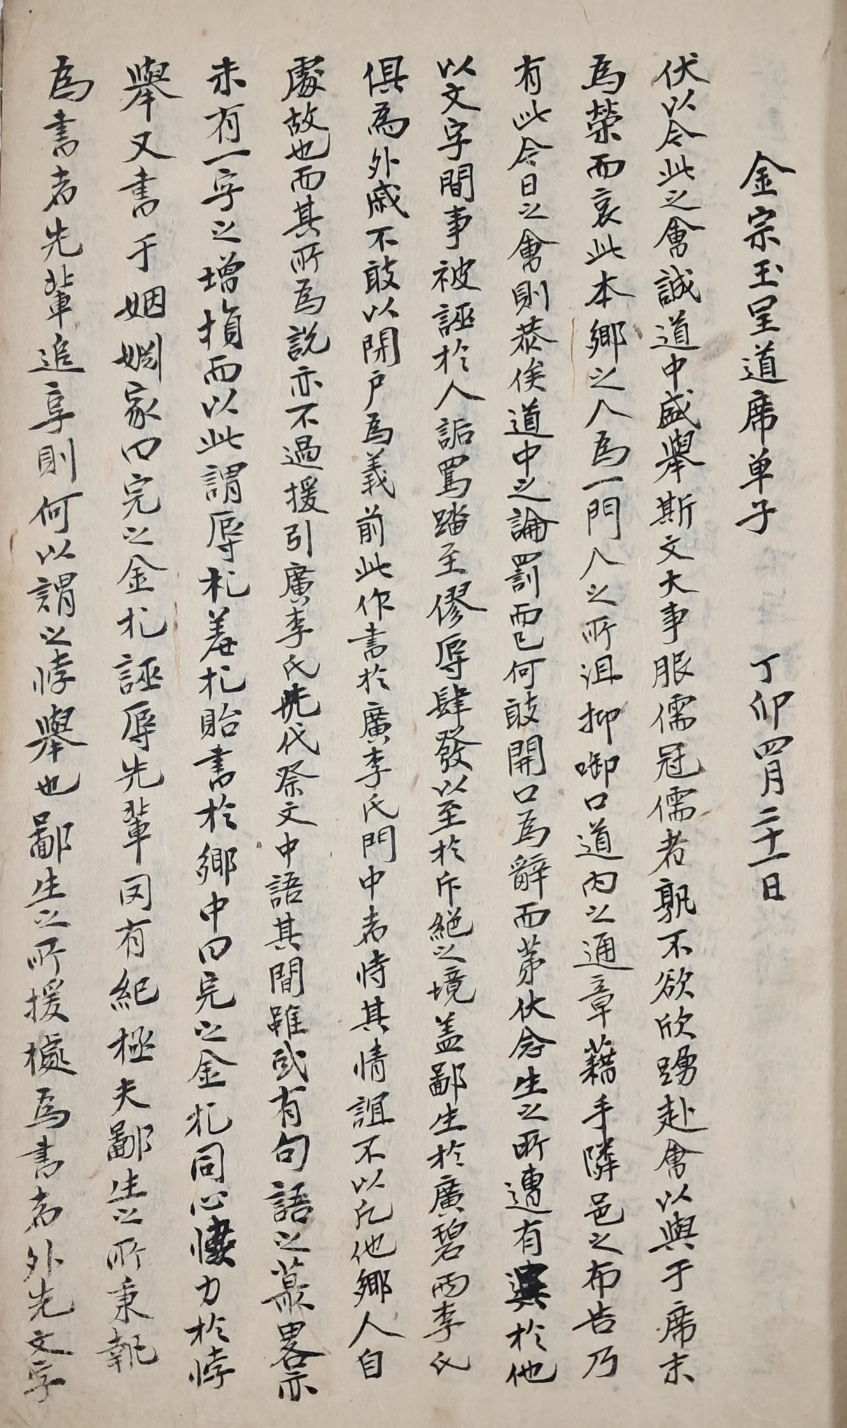 金宗玉呈道席单子 丁卯四月二十一日
伏以今此之會誠道中盛舉斯文大事服儒冠儒者孰不欲欣踴赴會以與于席末
為榮而哀此本鄉之人為一門人之所沮抑啣口道內之通章藉手隣邑之布告乃
有此今日之會則恭俟道中之論罰而已何敢開口為辭而第伏念生之所遭有異於他
以文字間事被誣於人詬罵踏至僇辱肆發以至於斥絕之境盖鄙生於廣碧兩李氏
俱為外戚不敢以閉户為義前此作書於廣李氏門中者恃其情誼不以凡他鄉人自
處故也而其所為說亦不過援引廣李氏先代祭文中語其間雖或有句語之蒙畧亦
未有一字之增損而以此謂辱札羞札貽書於鄉中曰完之金札同心悽力於悖
舉又書于姻婣家曰完之金札誣辱先輩罔有紀極夫鄙生之所秉執
為書者先輩追享則何以謂之悖舉也鄙生之所援據為書者外先文字